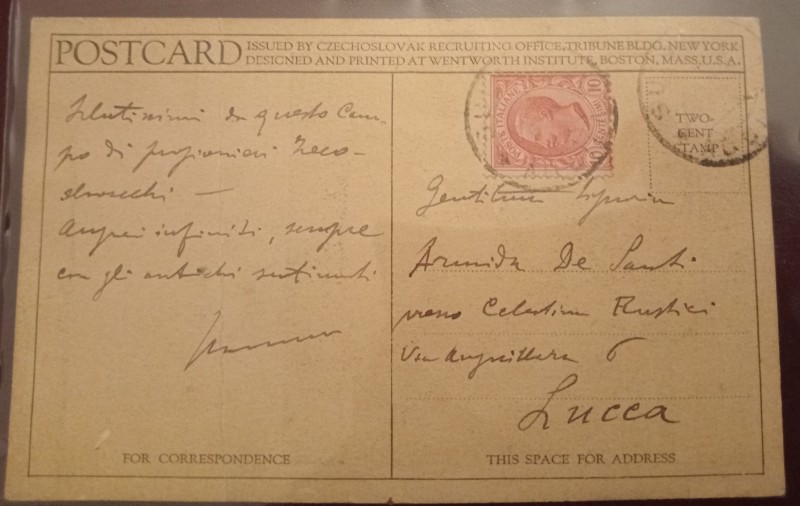 POSTCARD
ISSUED BY CZECHOSLOVAK RECRUITING OFFICE, TRIBUNE BLDG. NEW YORK
DESIGNED AND PRINTED AT WENTWORTH INSTITUTE, BOSTON, MASS., U.S.A.
da questo Cam-
po di prigionieri Zeco-
slovacchi —
Auguri infiniti, sempre
con gli antichi sentimenti
POSTE ITALIANE
CENTESIMI 10
TWO-
CENT
STAMP
Signorina
Armida De Santi
presso Celestina Rustici
Via Anguillara 6
Lucca
FOR CORRESPONDENCE
THIS SPACE FOR ADDRESS